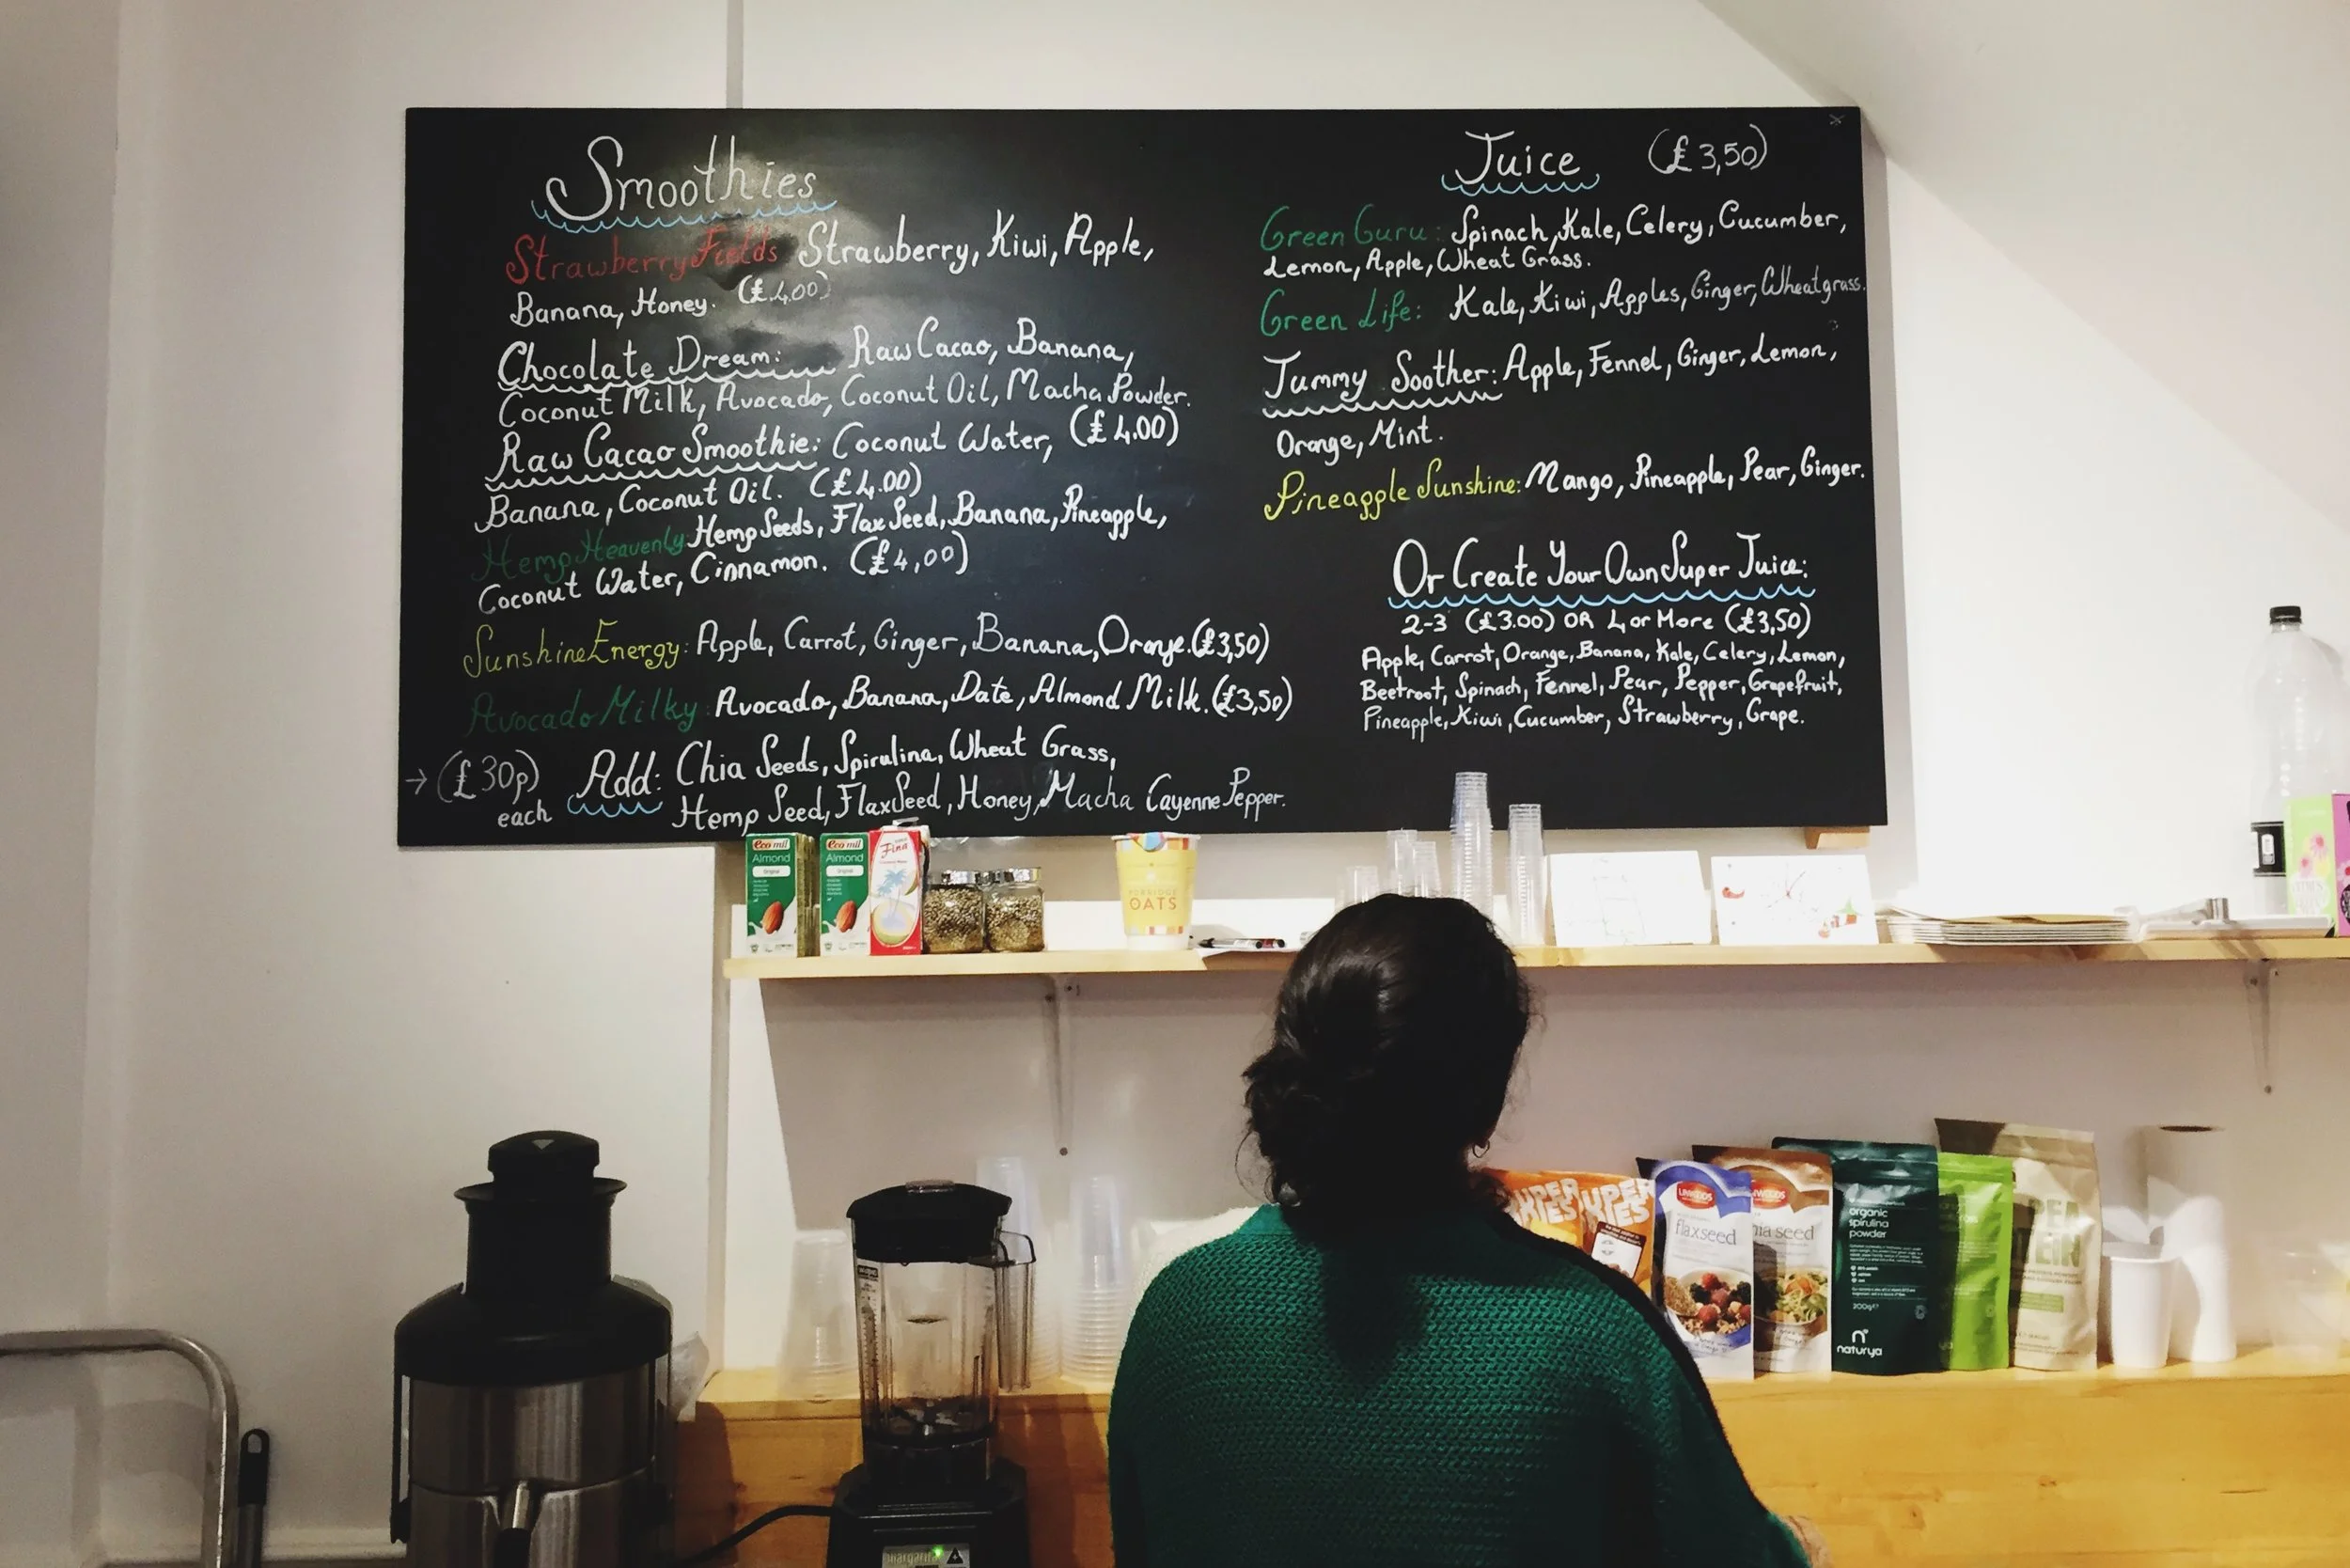 Smoothies
Strawberry Fields Strawberry, Kiwi, Apple,
Banana, Honey. (£4.00)
Chocolate Dream: Raw Cacao, Banana,
Coconut Milk, Avocado, Coconut Oil, Macha Powder.
Raw Cacao Smoothie: Coconut Water, (£4.00)
Banana, Coconut Oil. (£4.00)
Hemp Heavenly: Hemp Seeds, Flax Seed, Banana, Pineapple,
Coconut Water, Cinnamon. (£4,00)
Sunshine Energy: Apple, Carrot, Ginger, Banana, Orange. (£3,50)
Avocado Milky: Avocado, Banana, Date, Almond Milk. (£3,50)
→ (£30p) each Add: Chia Seeds, Spirulina, Wheat Grass,
Hemp Seed, Flax Seed, Honey, Macha Cayenne Pepper.
Juice (£3,50)
Green Guru: Spinach, Kale, Celery, Cucumber,
Lemon, Apple, Wheat Grass.
Green Life: Kale, Kiwi, Apples, Ginger, Wheatgrass.
Tummy Soother: Apple, Fennel, Ginger, Lemon,
Orange, Mint.
Pineapple Sunshine: Mango, Pineapple, Pear, Ginger.
Or Create Your Own Super Juice:
2-3 (£3.00) OR 4 or More (£3,50)
Apple, Carrot, Orange, Banana, Kale, Celery, Lemon,
Beetroot, Spinach, Fennel, Pear, Pepper, Grapefruit,
Pineapple, Kiwi, Cucumber, Strawberry, Grape.
eco mil
Almond
Original
eco mil
Almond
Fina
PORRIDGE
OATS
LINWOODS
flaxseed
organic
spirulina
powder
200g
naturya